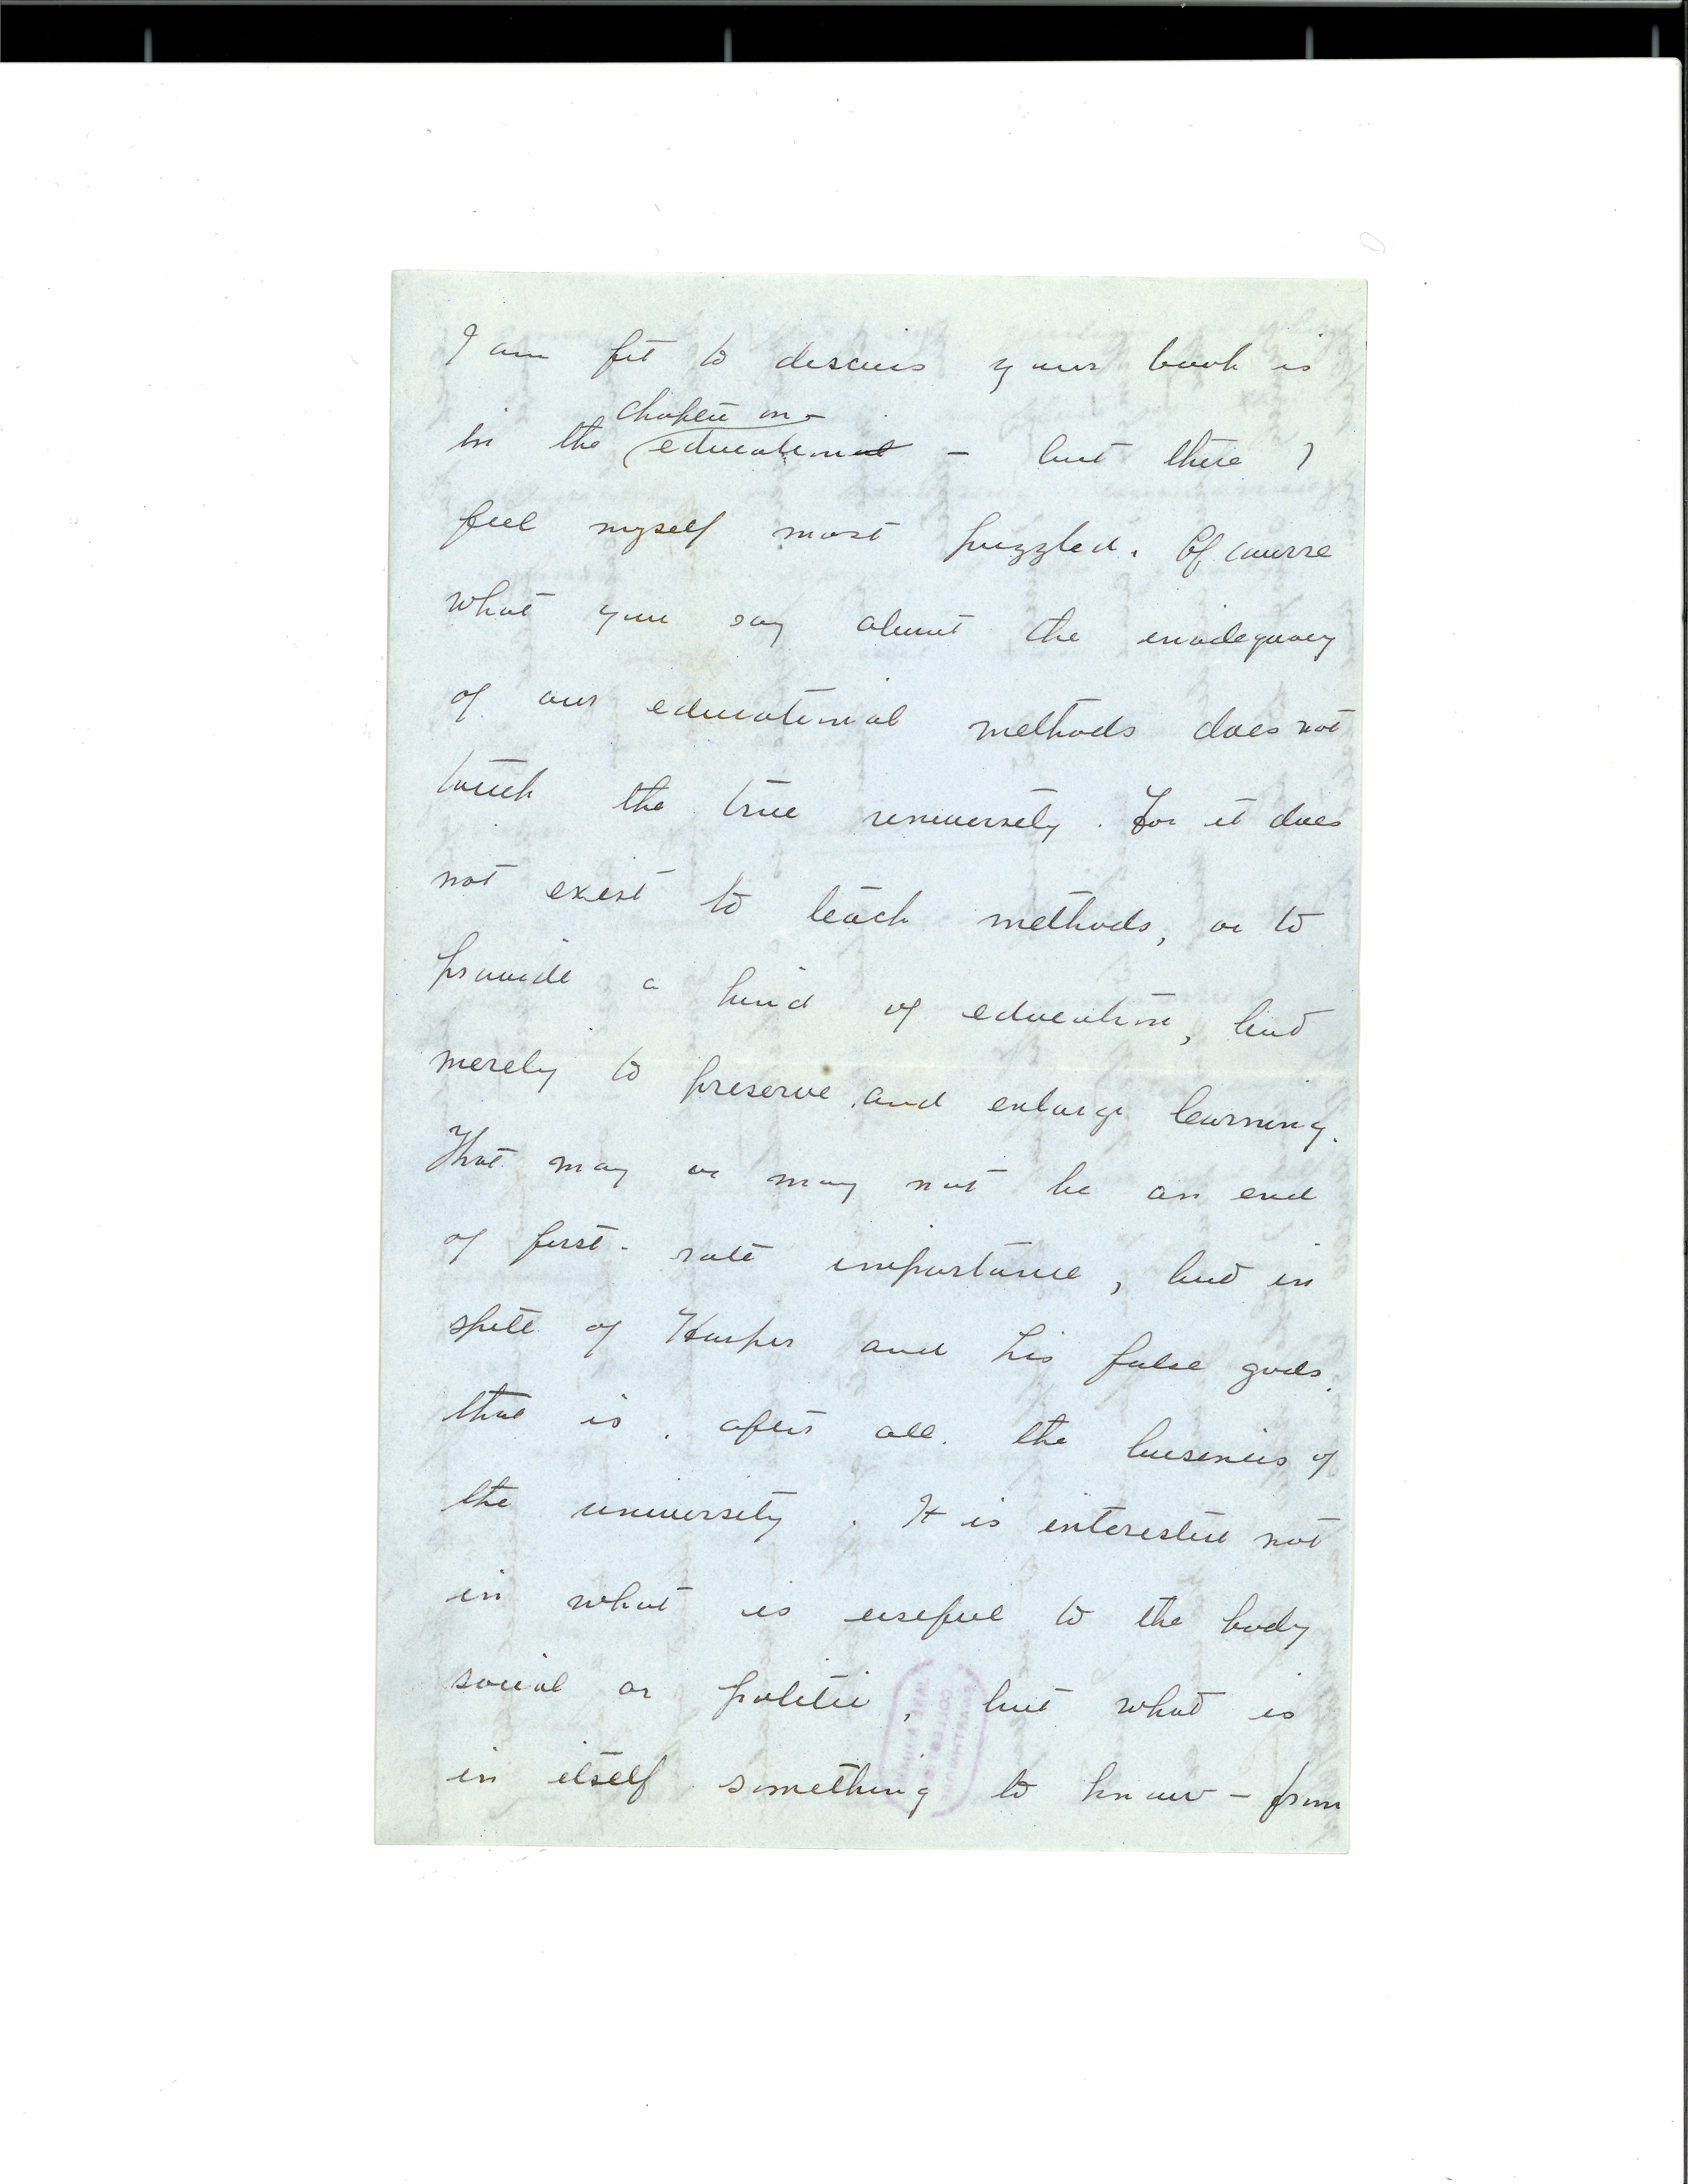 I am fit to discuss your book is
chapter on
in the educational – but there I
feel myself most puzzled. Of course
what you say about the inadequacy
of our educational methods does not
touch the true university. For it does
not exist to teach methods, or to
provide a kind of education, but
merely to preserve and enlarge learning.
That may or may not be an end
of first-rate importance, but in
spite of Harper and his false gods,
that is, after all, the business of
the university. It is interested not
in what is useful to the body
social or politic, but what is
in itself something to know – from